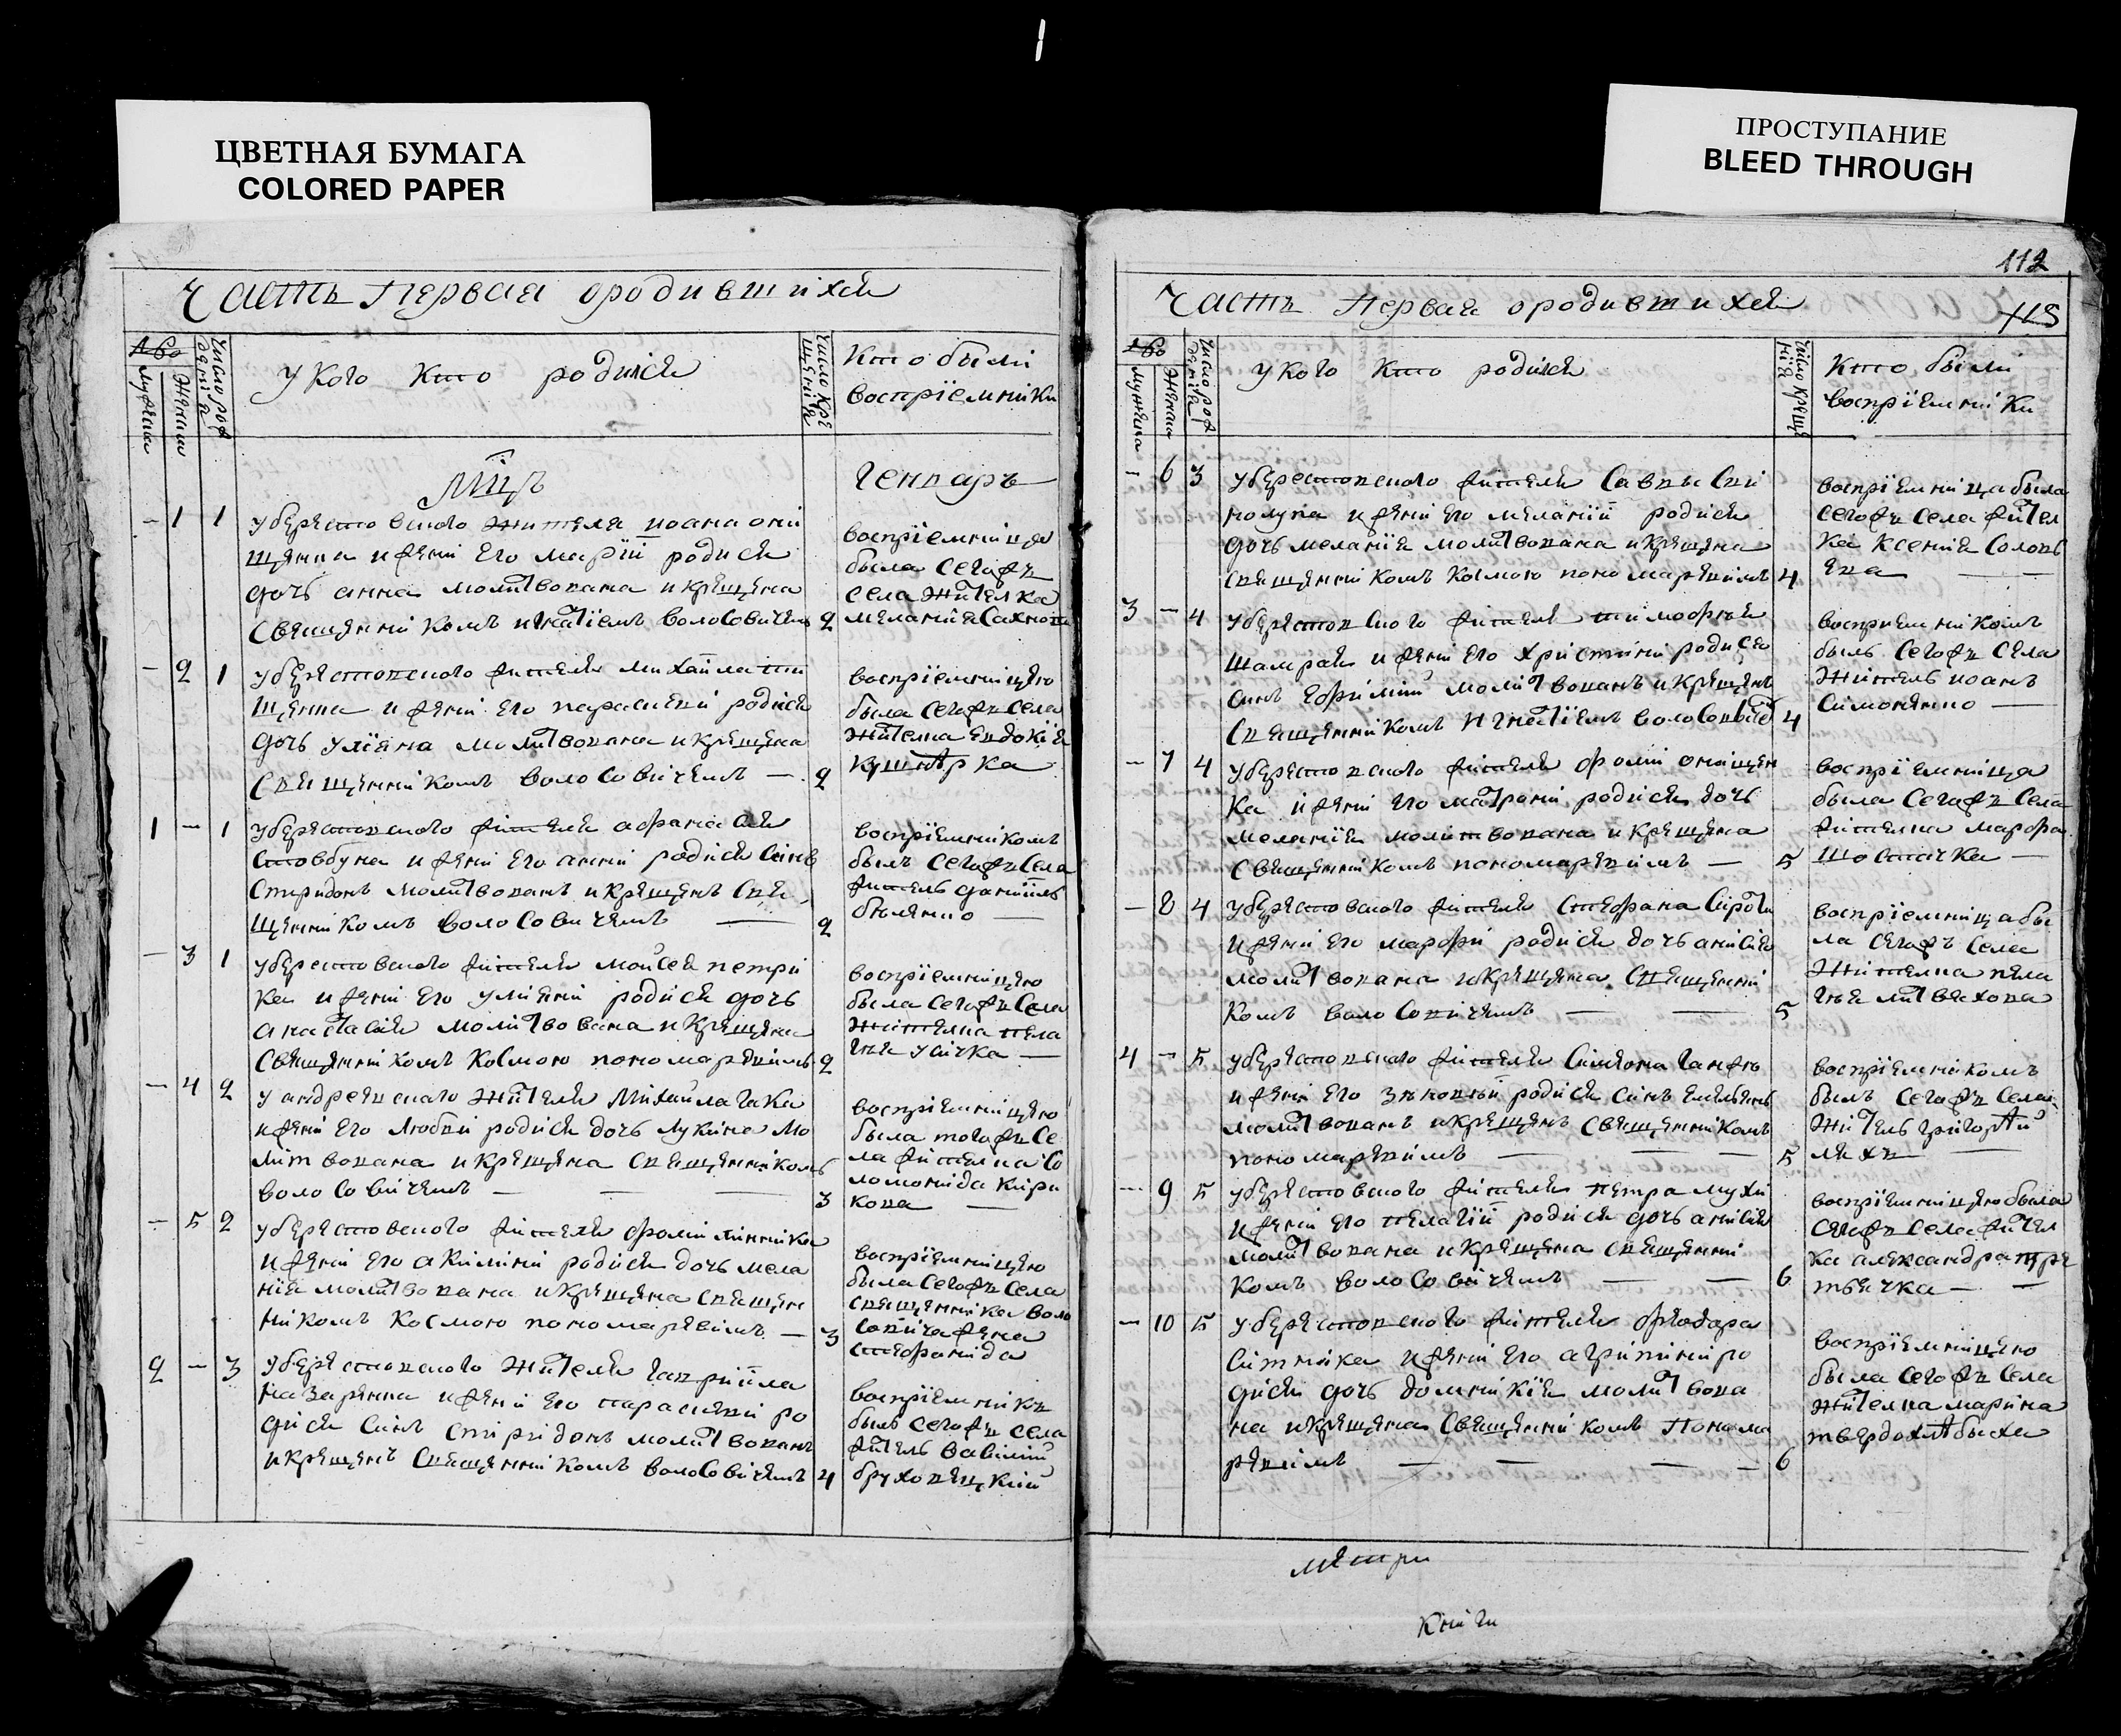 ЦВЕТНАЯ БУМАГА
COLORED PAPER
ПРОСТУПАНИЕ
BLEED THROUGH
112
115
Часть Первая ородившихся
№во
мужеска
Женски
Число рож
деніїа
у кого кто родился
Число Кре
щеніїа
Кто были
воспріемники
Мцъ
Генваръ
- 1 1 уберестовского Жителя иоана они
щенка и жени его маріи родися
дочь анна молитвована и крещена
Священникомъ игнатіемъ волосовичемъ 2
воспріемница
была сегожъ
села жителка
меланія Сахнова
- 2 1 уберестовского жителя михаила
щенка и жени его параскеви родися
дочь уліяна молитвована и крещена
Священникомъ волосовичемъ — 2
воспріемницею
была сегожъ села
жителка евдокія
кушнѣрка
1 - 1 уберестовского жителя афанасия
Стовбуна и жени его анни родися синъ
Спиридонъ молитвованъ и крещенъ Свя
щенникомъ волосовичемъ — 2
воспріемникомъ
былъ сегожъ села
житель даніилъ
— 3 1 уберестовского жителя мойсея петри
ка и жени его улияни родися дочь
анастасия молитвована и крещена
Священникомъ Космою пономаревимъ 2
воспріемницею
была сегожъ села
жителка пела
гѣя усичка —
— 4 2 у андреевского жителя Михайла гака
и жени его любви родися дочь лукина мо
литвована и крещена священникомъ
волосовичемъ — — 3
воспріемницею
была тогожъ се
ла жителка Со
ломонида кири
кова —
— 5 2 уберестовского жителя фоми линника
и жени его акилини родися дочь мела
нія молитвована и крещена священ
никомъ Космою пономаревимъ — 3
воспріемницею
была сегожъ села
священника воло
совича жена
стефанида
2 — 3 уберестовского жителя гавриила
назаренка и жени его параскеви ро
дися синъ спиридонъ молитвованъ
и крещенъ священникомъ волосовичемъ 4
воспріемникъ
былъ сегожъ села
житель вавилий
бруховецкий
Часть Первая ородившихся
№во
мужеска
Женска
Число рож
деніїа
у кого Кто родился
Число Креще
ніїа
Кто были
воспріемники
- 6 3 уберестовского жителя Саввы Сни
и жени его меланіи родися
дочь меланія молитвована и крещена
священникомъ Космою пономаревимъ 4
воспріемница была
сегожъ села жител
ка ксенія Соловь
ева — —
3 — 4 уберестовского жителя тимофѣя
шамрая и жени его христини родися
синъ ефимий молитвованъ и крещенъ
священникомъ игнатіемъ волосовичем 4
восприемникомъ
былъ сегожъ села
житель иоанъ
Симоненко —
— 7 4 уберестовского жителя фоми онищен
ка и жени его матрони родися дочь
меланія молитвована и крещена
священникомъ пономаревимъ — 5
воспріемница
была сегожъ села
жителка марфа
шостачка —
— 8 4 уберестовского жителя Стефана Сироти
и жени его марфи родися дочь анисия
молитвована и крещена священни
комъ волосовичемъ — — 5
воспріемница бы
ла сегожъ села
жителка пела
гѣя литвяхова
4 — 5 уберестовского жителя Симеона ганжи
и жени его зѣновъи родися синъ емельянъ
молитвованъ и крещенъ священникомъ
пономаревимъ — — — 5
воспріемникомъ
былъ сегожъ села
житель григорій
ляхъ —
— 9 5 уберестовского жителя петра мухи
и жени его пелагіи родися дочь анисия
молитвована и крещена священни
комъ волосовичемъ — — 6
воспріемницею была
сегожъ села жител
ка александра тре
тьячка — —
— 10 5 уберестовского жителя феодора
ситника и жени его агрипини ро
дися дочь домникія молитвова
на и крещена священникомъ Понома
ревимъ — — — — 6
воспріемницею
была сегожъ села
жителка марина
твердохлѣбиха
метри
книги